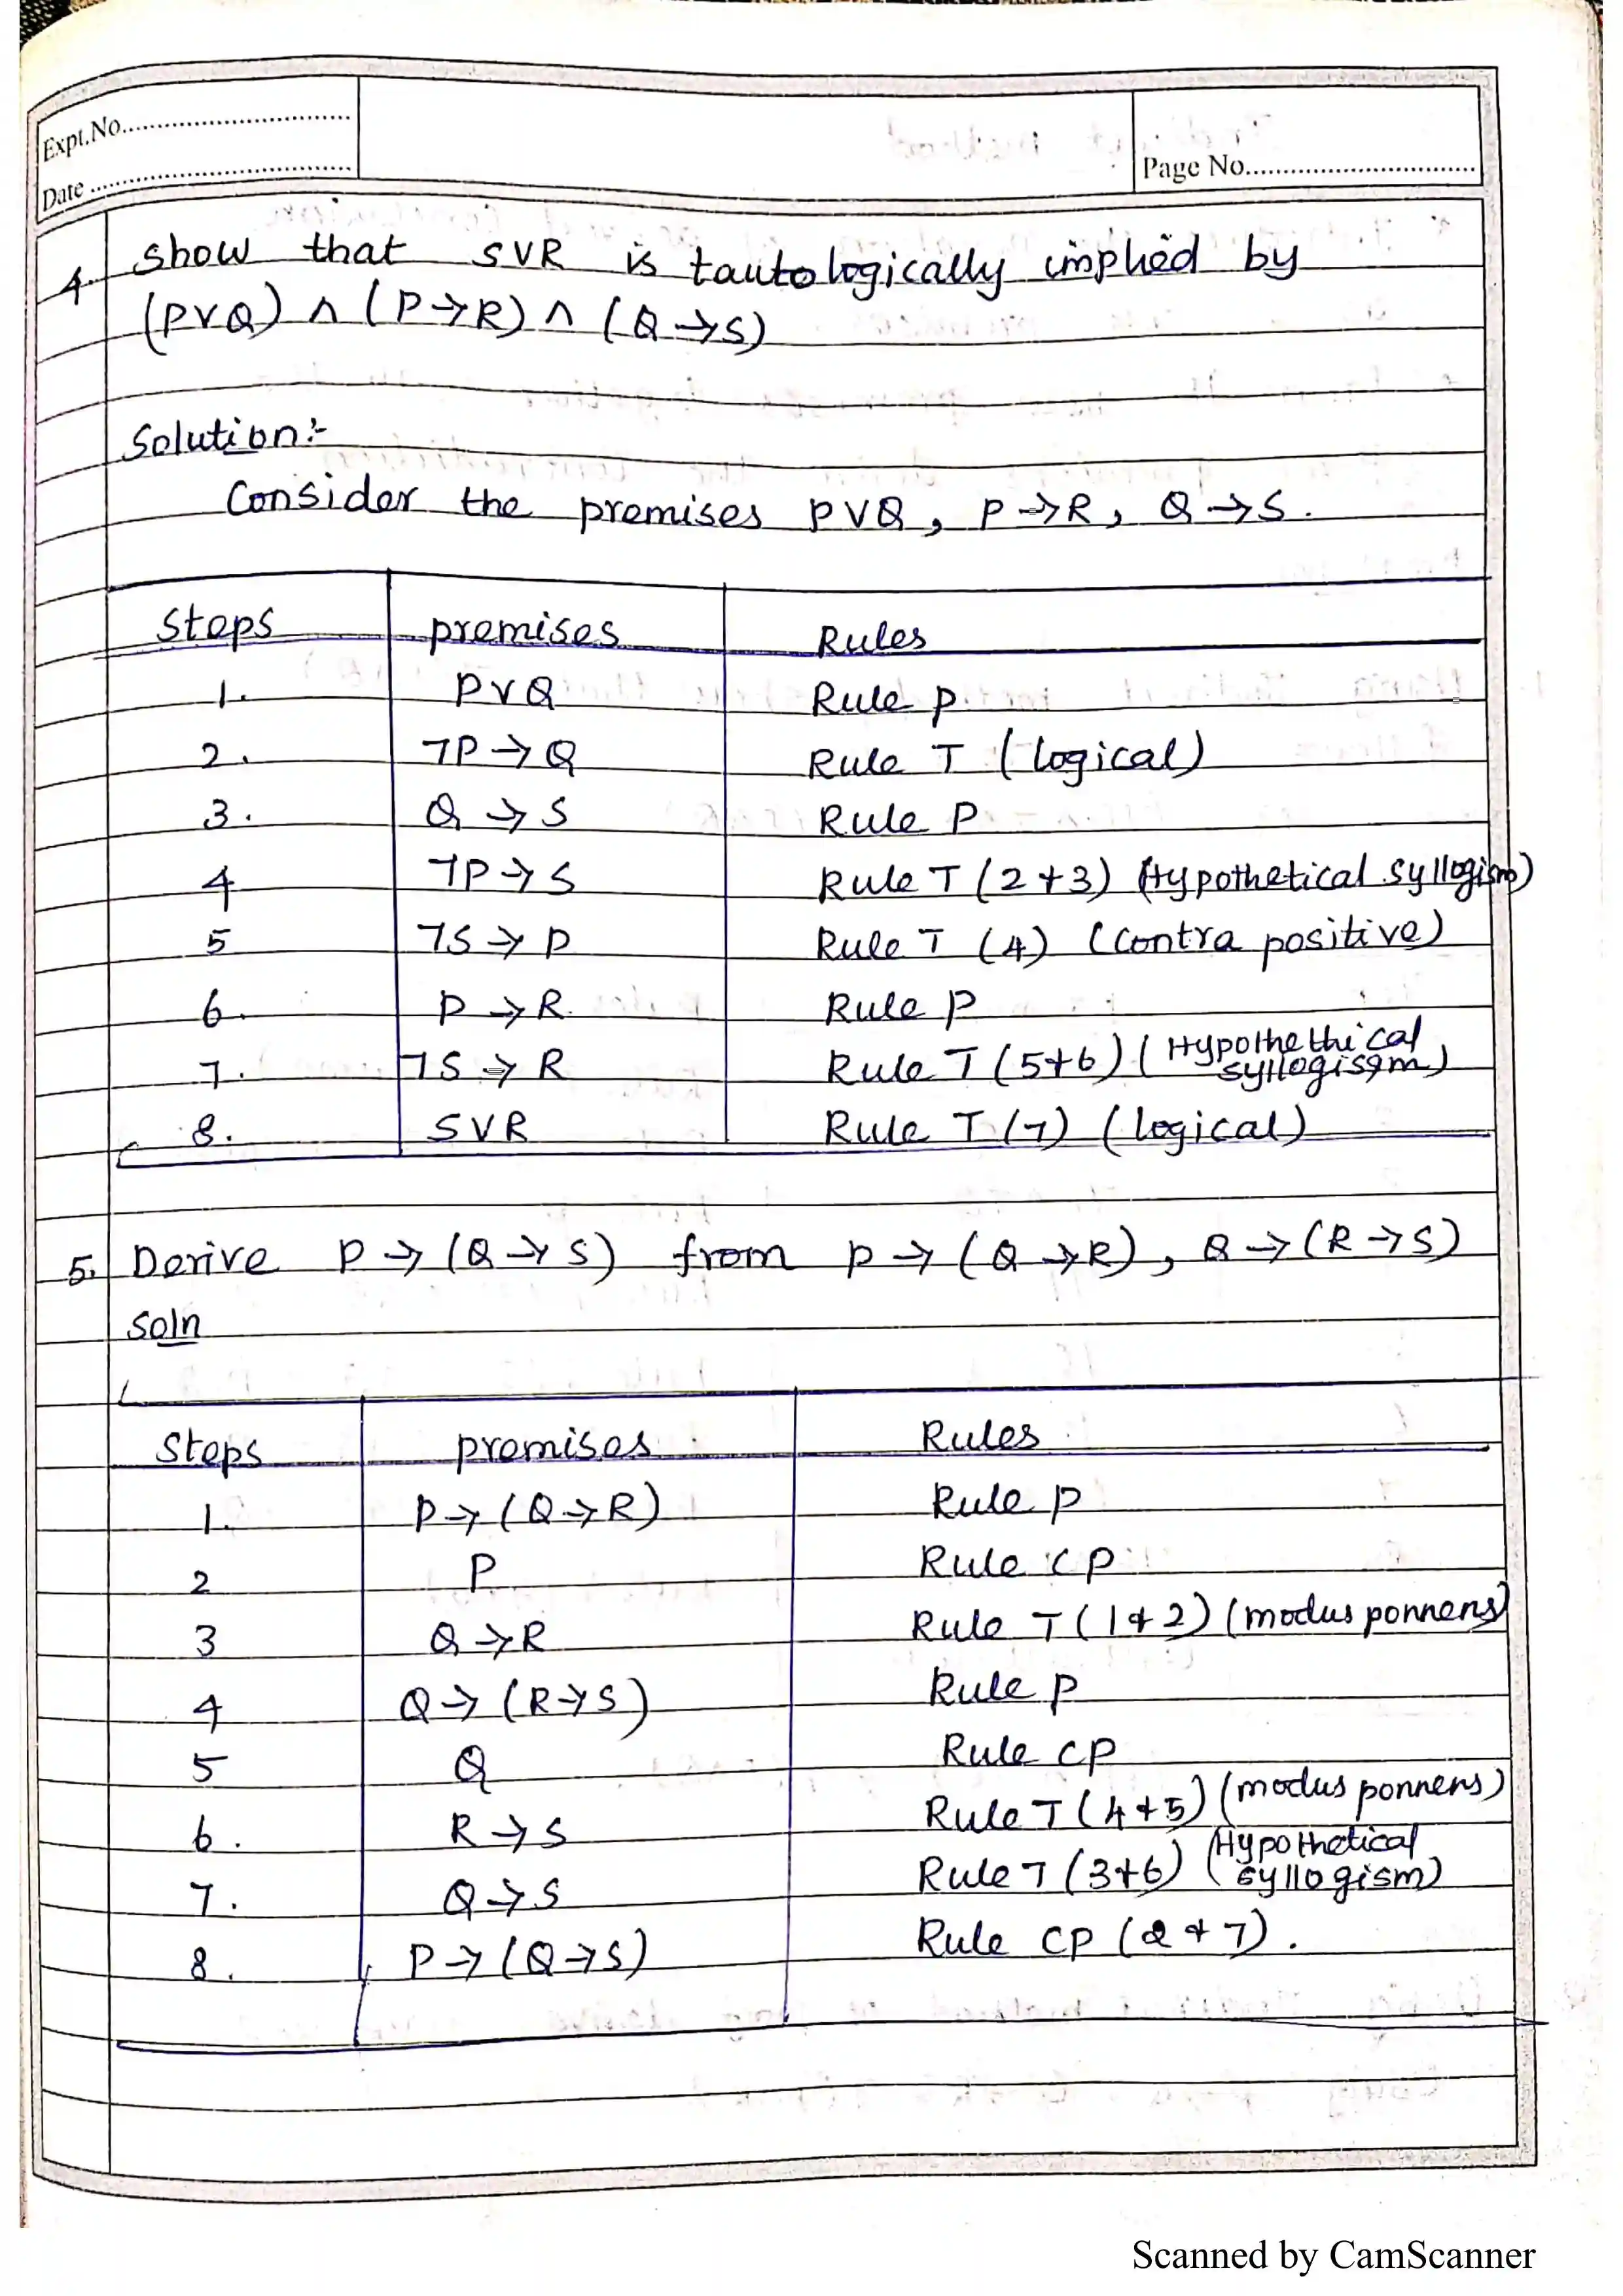 Expt.No.
Date
Page No.
4. Show that SVR is tautologically implied by
(PVQ) ∧ (P→R) ∧ (Q→S)
Solution:-
Consider the premises PVQ, P→R, Q→S.
Steps premises Rules
1. PVQ Rule P
2. ¬P→Q Rule T (logical)
3. Q→S Rule P
4 ¬P→S Rule T (2+3) (Hypothetical syllogism)
5 ¬S→P Rule T (4) (Contra positive)
6. P→R Rule P
7. ¬S→R Rule T (5+6) (Hypothethical
syllogism)
8. SVR Rule T (7) (logical)
5. Derive P→(Q→S) from P→(Q→R), Q→(R→S)
Soln
Steps premises Rules
1. P→(Q→R) Rule P
2 P Rule CP
3 Q→R Rule T (1+2) (modus ponnens)
4 Q→(R→S) Rule P
5 Q Rule CP
6. R→S Rule T (4+5) (modus ponnens)
7. Q→S Rule T (3+6) (Hypothetical
syllogism)
8. P→(Q→S) Rule CP (2+7).
Scanned by CamScanner